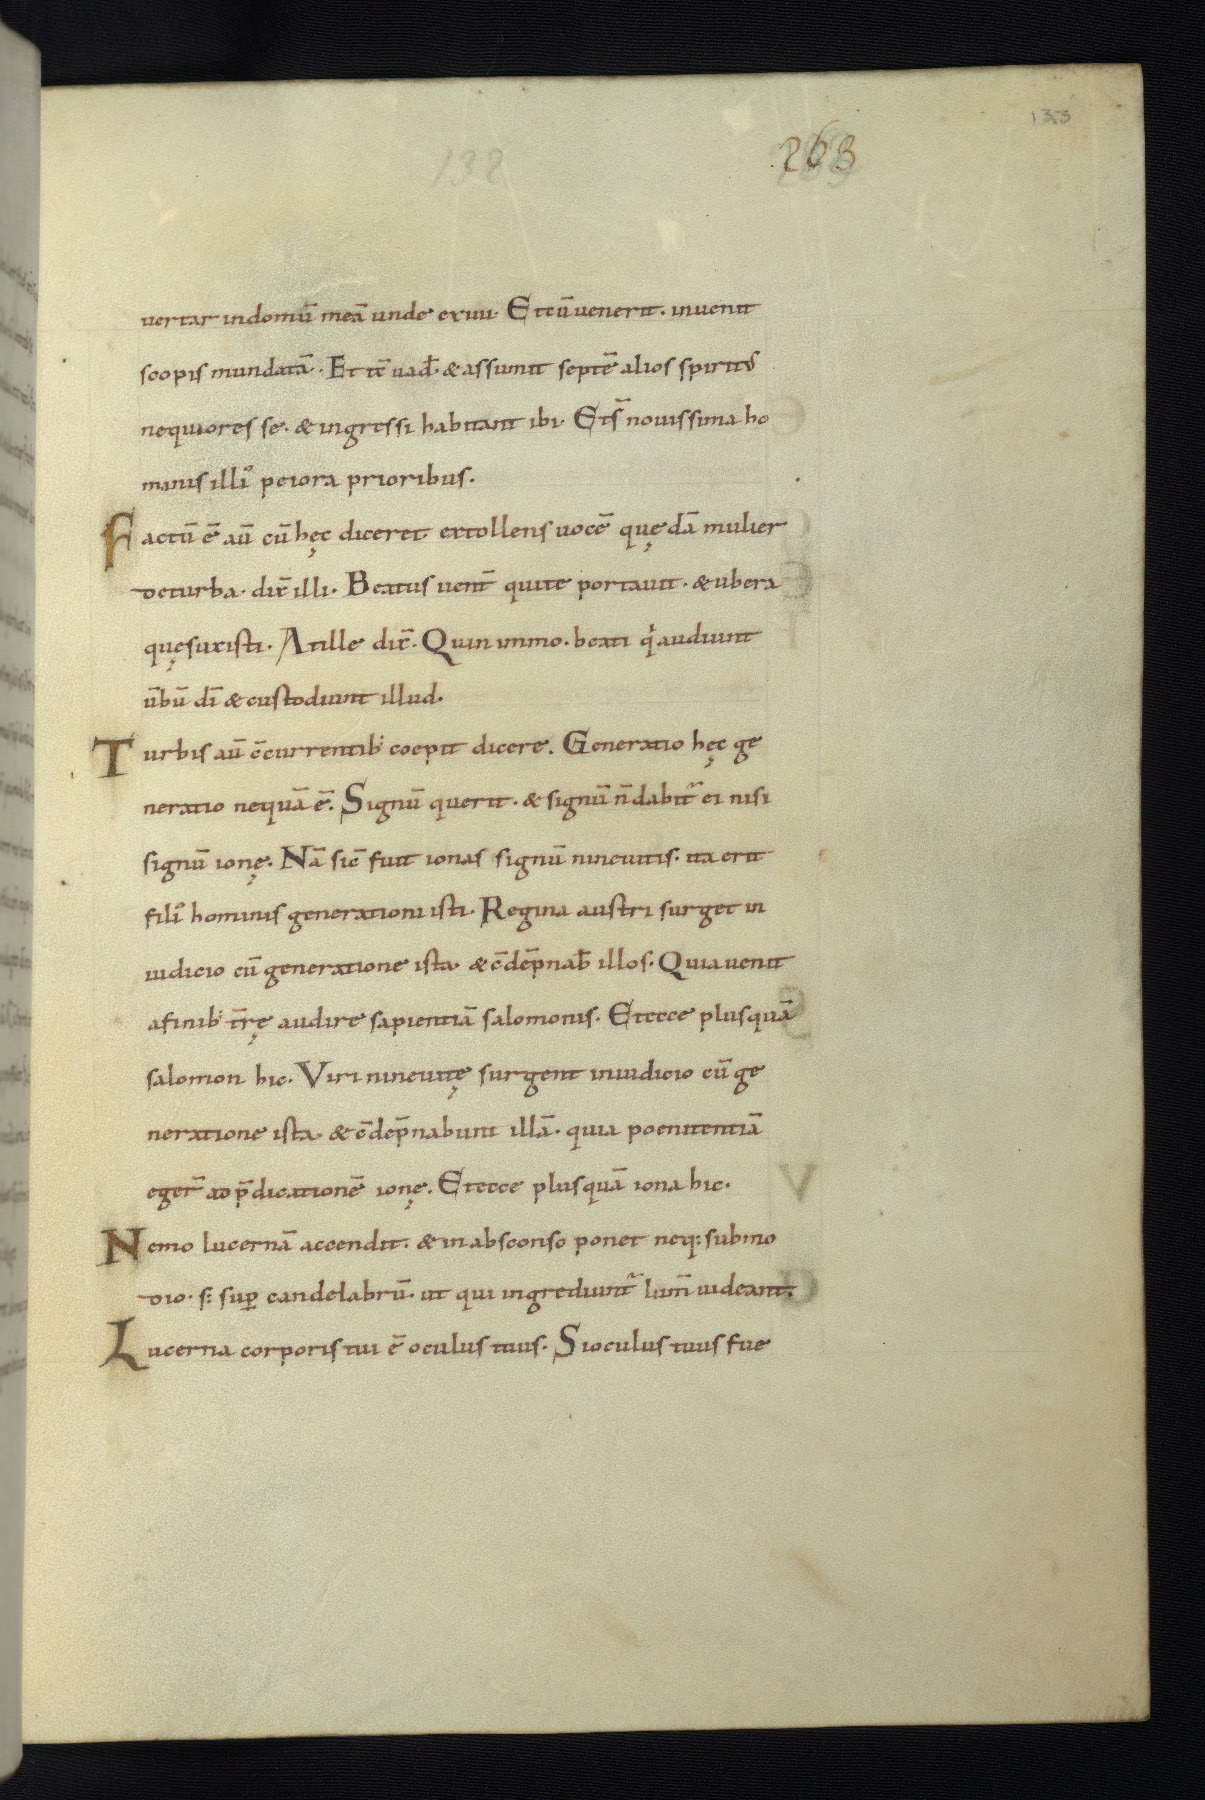 133
132
263
vertar in domū meā unde exiui. Et cū uenerit. inuenit
scopis mundatā. Et tc̄ uad̄. & assumit septē alios spiritus
nequiores se. & ingressi habitant ibi. Et s̄ nouissima ho
minis illi᾽ peiora prioribus.
Factū ē aū cū hęc diceret. extollens uocē quędā mulier
de turba. dix̄ illi. Beatus uent̄ qui te portauit. & ubera
quę suxisti. At ille dix̄. Quin immo. beati qi audiunt
ūbū dī & custodiunt illud.
Turbis aū c̄currentib; coepit dicere. Generatio hęc ge
neratio nequā ē. Signū querit. & signū n̄ dabit᷑ ei nisi
signū ionę. Nā sic̄ fuit ionas signū nineuitis. ita erit
fili᾽ hominis generationi isti. Regina austri surget in
iudicio cū generatione ista & c̄dēpnab̄ illos. Quia uenit
a finib; tr̄ę audire sapientiā salomonis. Et ecce plus quā
salomon hic. Viri nineuitę surgent in iudicio cū ge
neratione ista & c̄dēpnabunt illā. quia poenitentiā
eger̄ ad p̄dicationē ionę. Et ecce plus quā iona hic.
Nemo lucernā accendit. & in absconso ponet neq; sub mo
dio. s; suꝑ candelabrū. ut qui ingrediunt᷑ lum̄ uideant.
Lucerna corporis tui ē oculus tuus. Si oculus tuus fue